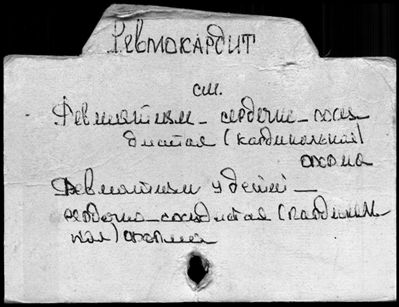 Ревмокардит
см.
Ревматизм - сердечно-сосу
дистая (кардиальная)
форма
Ревматизм у детей -
сердечно-сосудистая (кардиаль
ная) форма